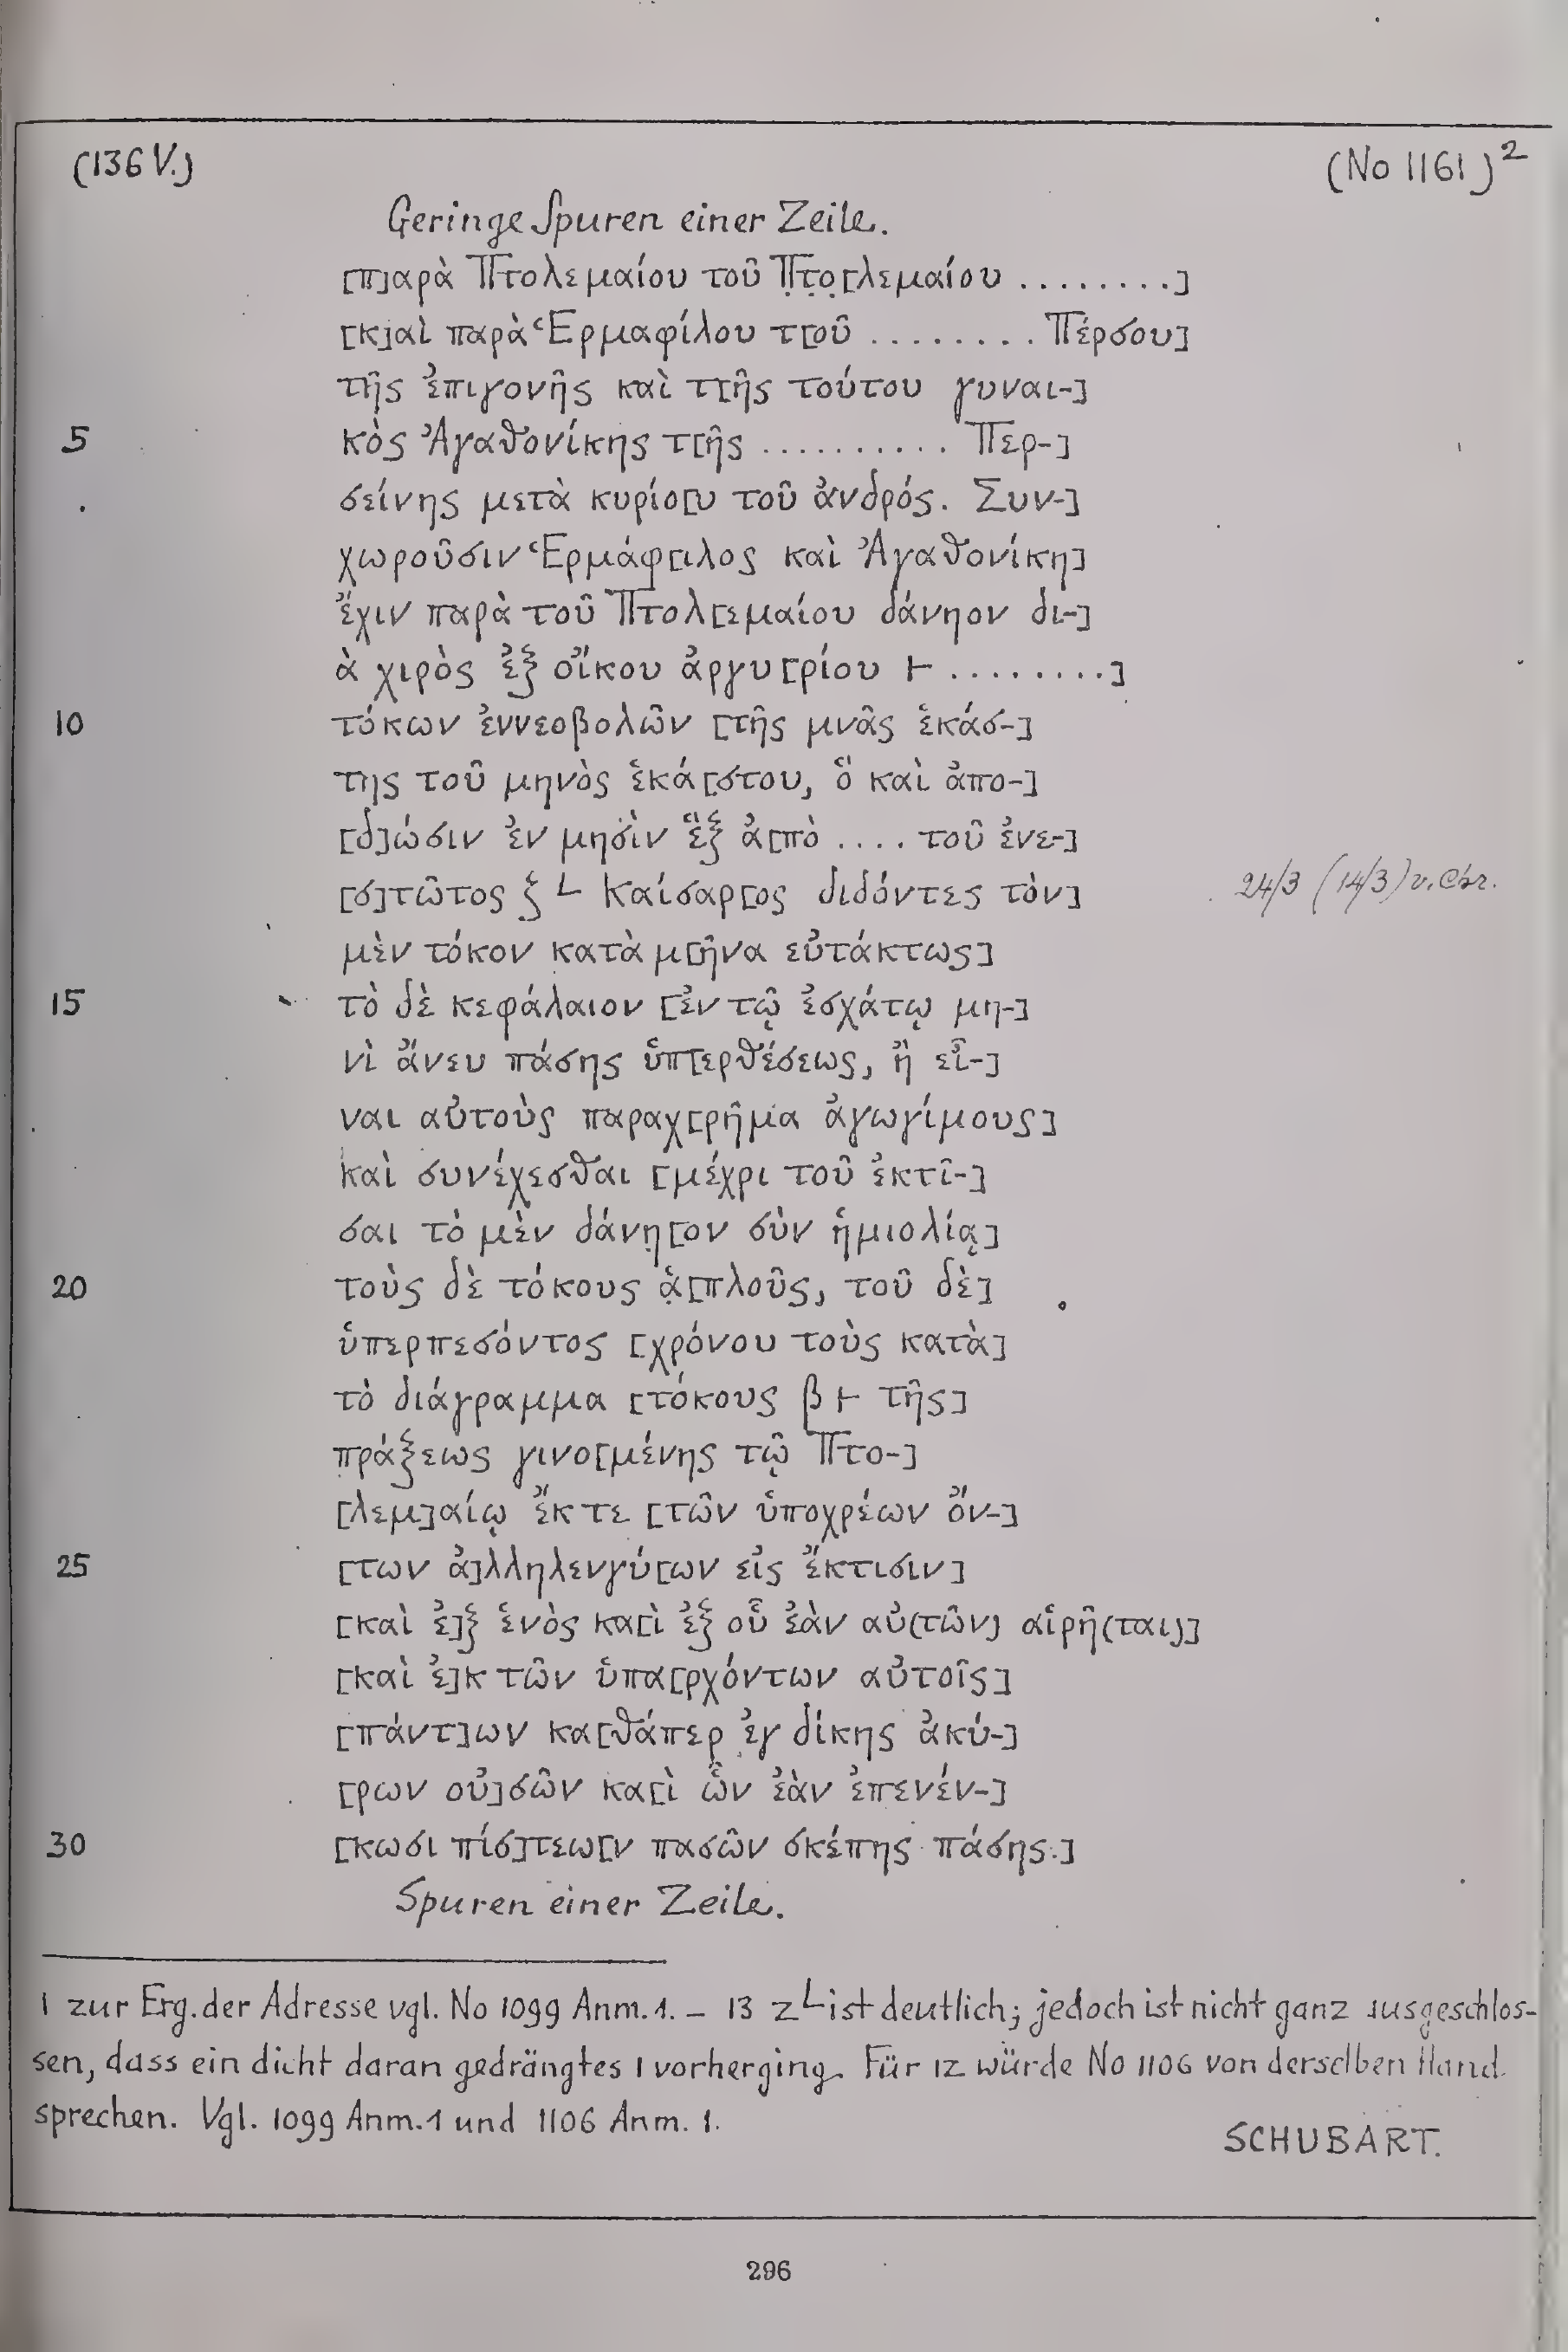 (136 V.) (No 1161)²
Geringe Spuren einer Zeile.
[π]αρὰ Πτολεμαίου τοῦ Π̣τ̣ο̣[λεμαίου ........]
[κ]αὶ παρὰ Ἑρμαφίλου τ[οῦ ........ Πέρσου]
τῆς ἐπιγονῆς καὶ τ[ῆς τούτου γυναι-]
5 κὸς Ἀγαθονίκης τ[ῆς .......... Περ-]
σείνης μετὰ κυρίο[υ τοῦ ἀνδρός. Συν-]
χωροῦσιν Ἑρμάφ[ιλος καὶ Ἀγαθονίκη]
ἔχιν παρὰ τοῦ Πτολ[εμαίου δάνηον δι-]
ὰ χιρὸς ἐξ οἴκου ἀργυ[ρίου ⊢ ........]
10 τόκων ἐννεοβολῶν [τῆς μνᾶς ἑκάσ-]
της τοῦ μηνὸς ἑκά[στου, ὃ καὶ ἀπο-]
[δ]ώσιν ἐν μησὶν ἓξ ἀ[πὸ .... τοῦ ἐνε-]
[σ]τῶτος ζ L Καίσαρ[ος διδόντες τὸν] 24/3 (14/3) v. Chr.
μὲν τόκον κατὰ μ[ῆνα εὐτάκτως]
15 τὸ δὲ κεφάλαιον [ἐν τῷ ἐσχάτῳ μη-]
νὶ ἄνευ πάσης ὑπ[ερθέσεως, ἢ εἶ-]
ναι αὐτοὺς παραχ[ρῆμα ἀγωγίμους]
καὶ συνέχεσθαι [μέχρι τοῦ ἐκτῖ-]
σαι τὸ μὲν δάνη̣[ον σὺν ἡμιολίᾳ]
20 τοὺς δὲ τόκους ἁ̣[πλοῦς, τοῦ δὲ]
ὑπερπεσόντος [χρόνου τοὺς κατὰ]
τὸ διάγραμμα [τόκους β ⊢ τῆς]
πράξεως γινο[μένης τῷ Πτο-]
[λεμ]αίῳ ἔκ τε [τῶν ὑποχρέων ὄν-]
25 [των ἀ]λληλενγύ[ων εἰς ἔκτισιν]
[καὶ ἐ]ξ ἑνὸς κα[ὶ ἐξ οὗ ἐὰν αὐ(τῶν) αἱρῆ(ται)]
[καὶ ἐ]κ τῶν ὑπα[ρχόντων αὐτοῖς]
[πάντ]ων κα[θάπερ ἐγ δίκης ἀκύ-]
[ρων οὐ]σῶν κα[ὶ ὧν ἐὰν ἐπενέν-]
30 [κωσι πίσ]τεω[ν πασῶν σκέπης πάσης.]
Spuren einer Zeile.
1 zur Erg. der Adresse vgl. No 1099 Anm. 1. – 13 z L ist deutlich; jedoch ist nicht ganz ausgeschlos-
sen, dass ein dicht daran gedrängtes I vorherging. Für IZ würde No 1106 von derselben Hand
sprechen. Vgl. 1099 Anm. 1 und 1106 Anm. 1.
SCHUBART.
296